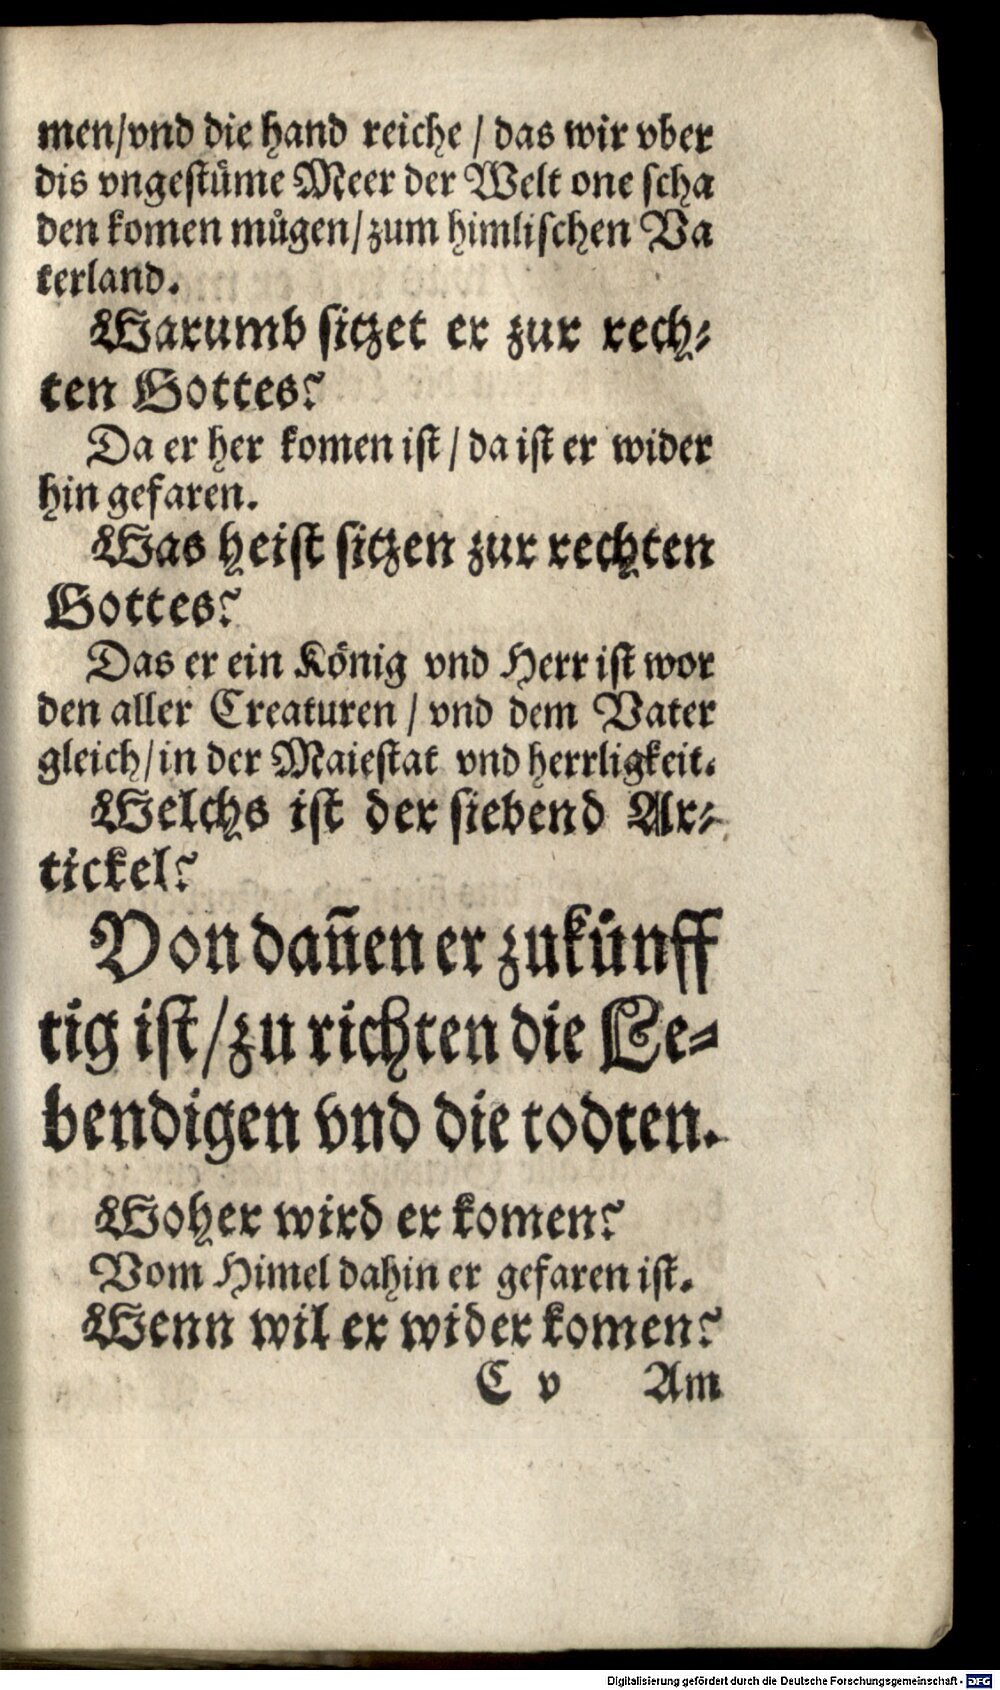 men/vnd die hand reiche / das wir vber
dis vngestüme Meer der Welt one scha
den komen mügen/zum himlischen Va
terland.
Warumb sitzet er zur rech⸗
ten Gottes?
Da er her komen ist / da ist er wider
hin gefaren.
Was heist sitzen zur rechten
Gottes?
Das er ein König vnd Herr ist wor
den aller Creaturen / vnd dem Vater
gleich/in der Maiestat vnd herrligkeit.
Welchs ist der siebend Ar⸗
tickel?
Von dañen er zukünff
tig ist/zu richten die Le⸗
bendigen vnd die todten.
Woher wird er komen?
Vom Himel dahin er gefaren ist.
Wenn wil er wider komen?
C v Am
Digitalisierung gefördert durch die Deutsche Forschungsgemeinschaft - DFG